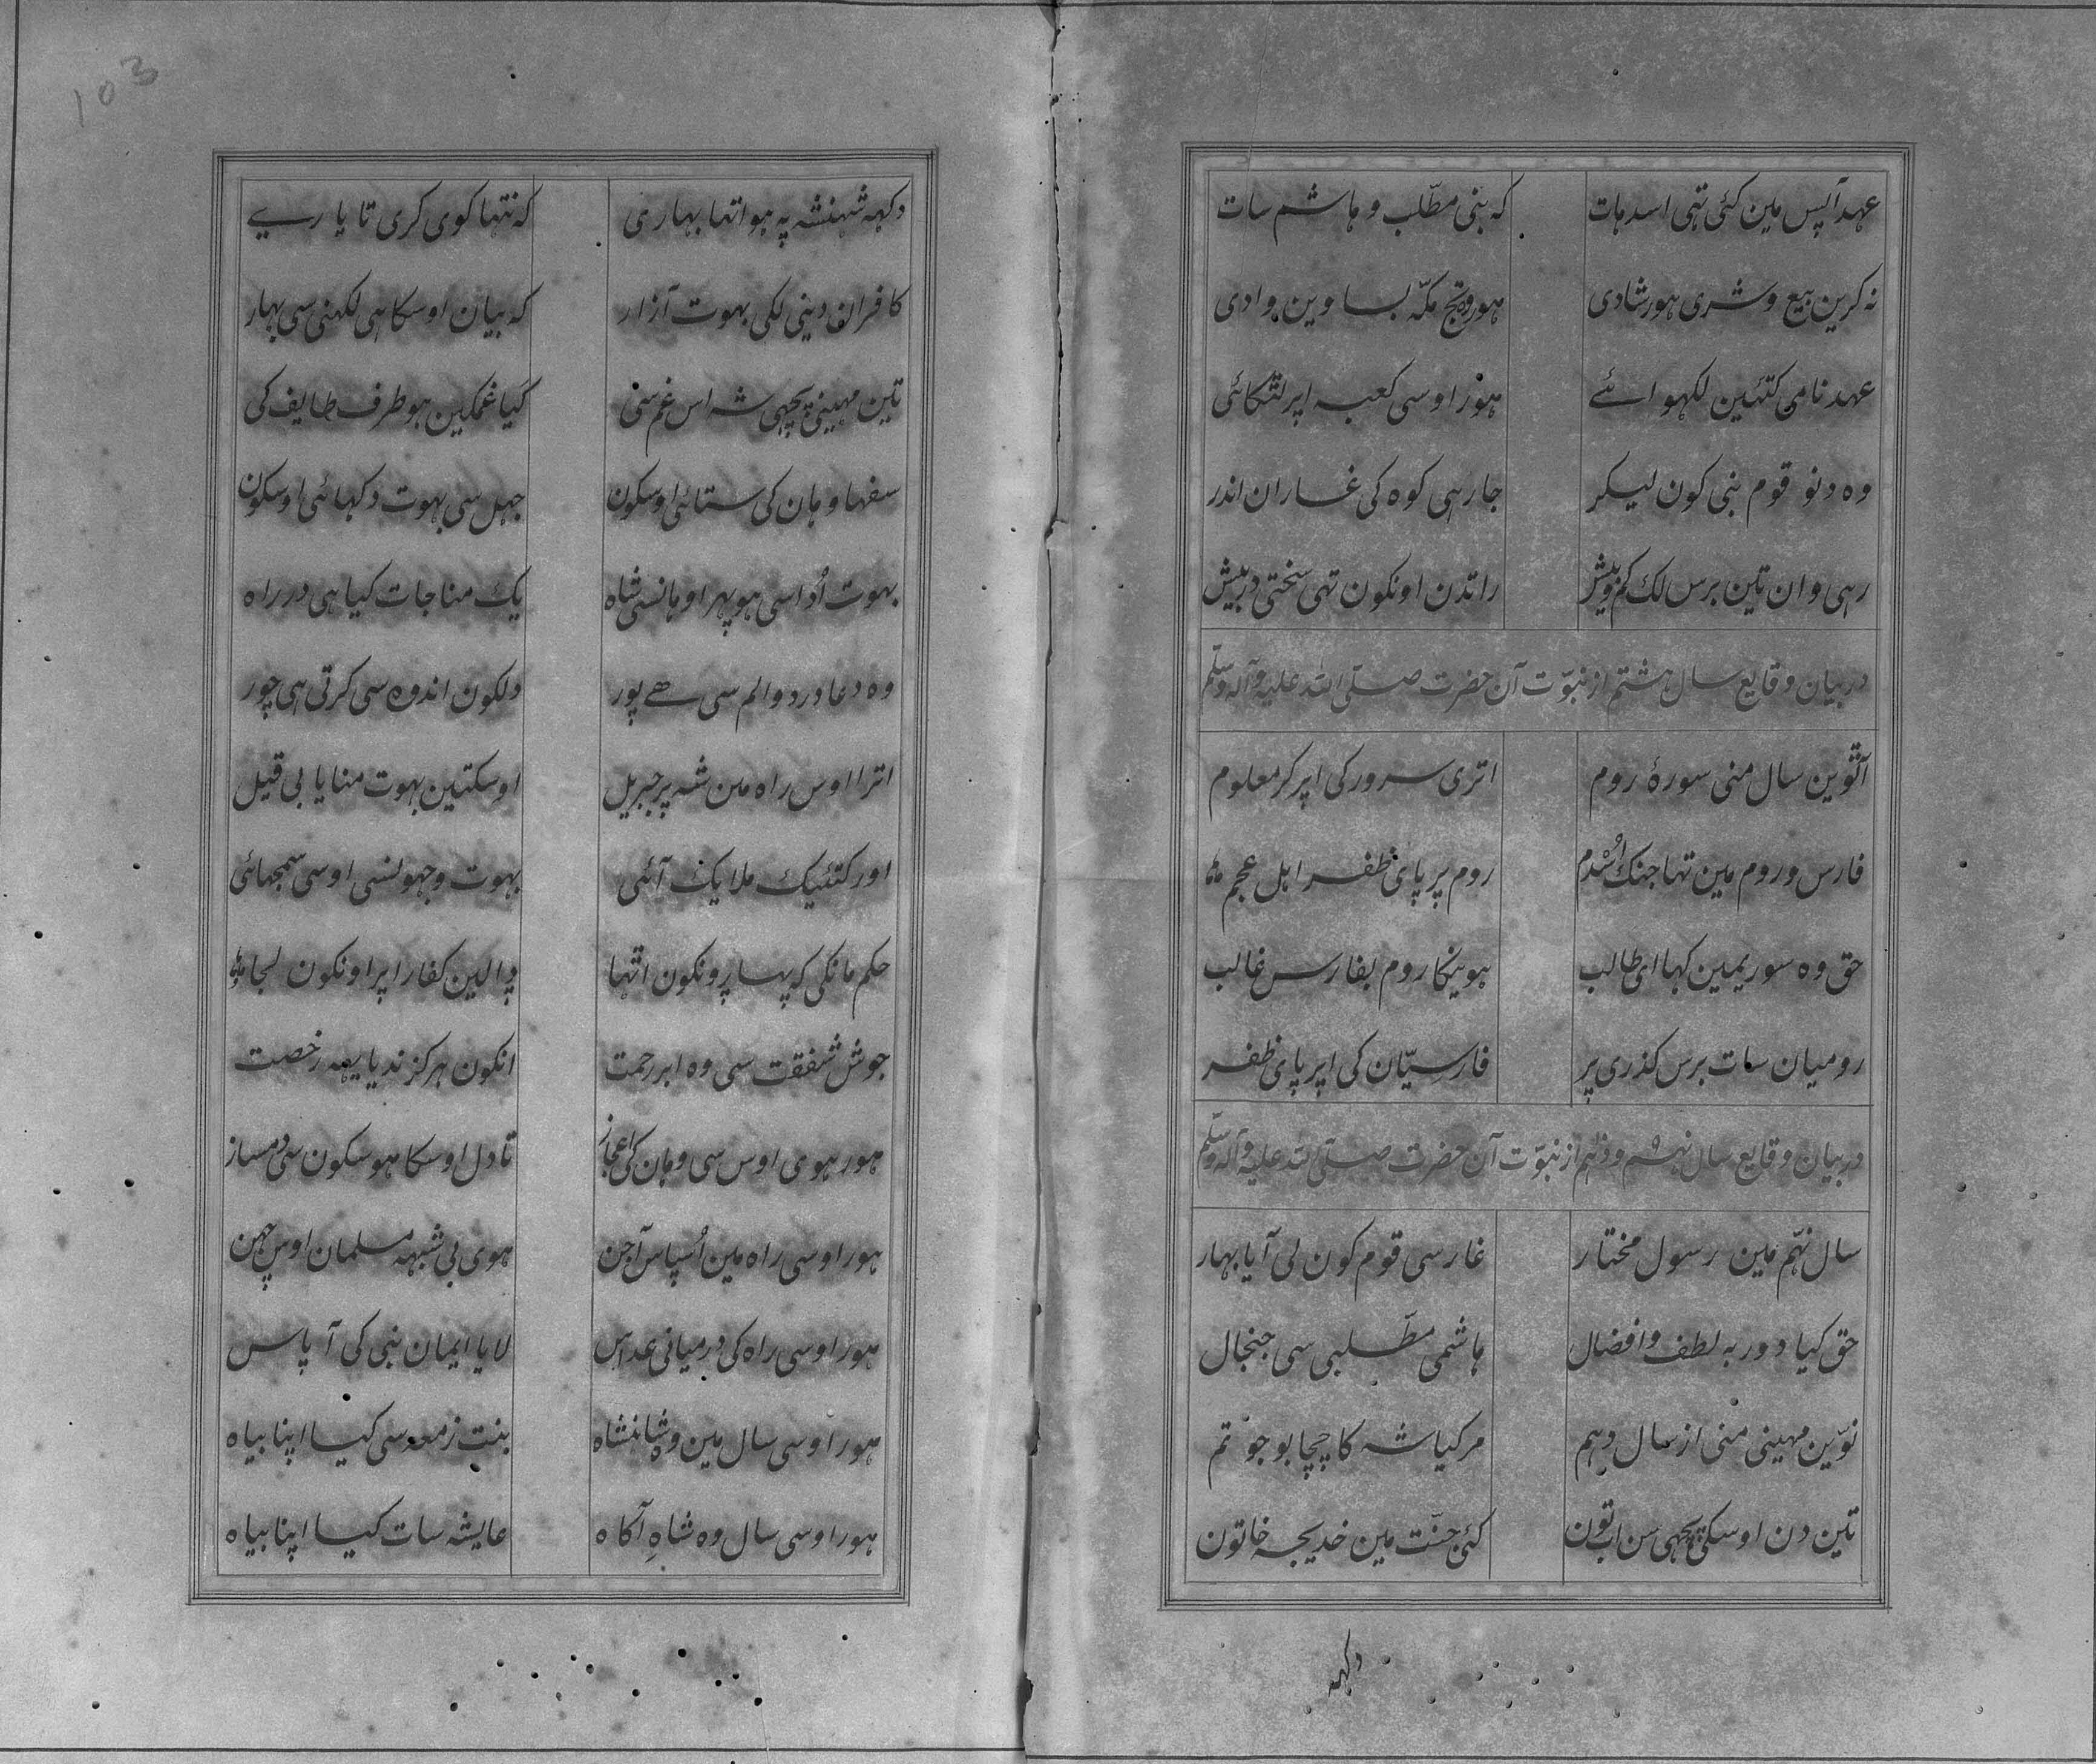 عہد آپس مین کئی تہی اسد ہات کہ بنی مطّلب و ہاشم سات
نہ کرین بیع و شری ہور شادی ہور تج مکّہ بساوین وادی
عہد نامی کتئین لکہوائے ہور اوسی کعبہ اپر لٹکائی
وہ دنو قوم نبی کون لیکر جا رہی کوہ کی غاران اندر
رہی وان تین برس لک کم و بیش راتدن اونکون تہی سختی در پیش
در بیان وقایع سال ہشتم از نبوّت آن حضرت صلّی اللہ علیہ وآلہ وسلّم
آٹوین سال منی سورۂ روم اتری سرور کی اپر کر معلوم
فارس و روم مین تہا جنک اُسْدم روم پر پائ ظفر اہل عجم
حق وہ سوریمین کہا ای طالب ہوینکا روم بفارس غالب
رومیان سات برس کذری پر فارسیّان کی اپر پائ ظفر
در بیان وقایع سال نہم و دہم از نبوّت آن حضرت صلّی اللہ علیہ وآلہ وسلّم
سال نہّم مین رسول مختار غار سی قوم کون لی آیا بہار
حق کیا دور بہ لطف و افضال ہاشمی مطّلبی سی جنجال
نوّین مہینی منی از سال دہم مر کیا شہ کا چچا بوجو تم
تین دن اوسکی پچہی سن اب تون کئی جنّت مین خدیجہ خاتون
دکہہ
103
دکہہ شہنشہ پہ ہوا تہا بہاری کہ نتہا کوی کری تا یاریے
کافران دینی لکی بہوت آزار کہ بیان اوسکا ہی لکہنی سی بہار
تین مہینی پچہی شہ اس غم سی کیا غمکین ہو طرف طایف کی
سفہا وہان کی ستائی اوسکون جہل سی بہوت دکہائی اوسکون
بہوت اُداسی ہو پہر اوہانسی شاہ یک مناجات کیا ہی در راہ
وہ دعا درد و الم سی ہے پور دلکون اندوہ سی کرتی ہی چور
اترا اوس راہ مین شہ پر جبریل اوسکتین بہوت منایا بی قیل
اور کتئیک ملایک آئی بہوت وجہونسی اوسی سمجہائی
حکم مانکی کہ پہاڑونکون اتہا ڈالین کفار اپر اونکون لجا
جوش شفقت سی وہ ابر رحمت انکون ہرکز ندیا یہہ رخصت
ہور ہوی اوس سی وہان کی اعجاز تا دل اوسکا ہو سکون سی دمساز
ہور اوسی راہ مین اُسپاس آ جن ہوی بی شبہہ مسلمان اوس چہن
ہور اوسی راہ کی درمیانی عداس لایا ایمان نبی کی آ پاس
ہور اوسی سال مین وہ شاہنشاہ بنت زمعہ سی کیا اپنا بیاہ
ہور اوسی سال وہ شاہِ آکاہ عایشہ سات کیا اپنا بیاہ